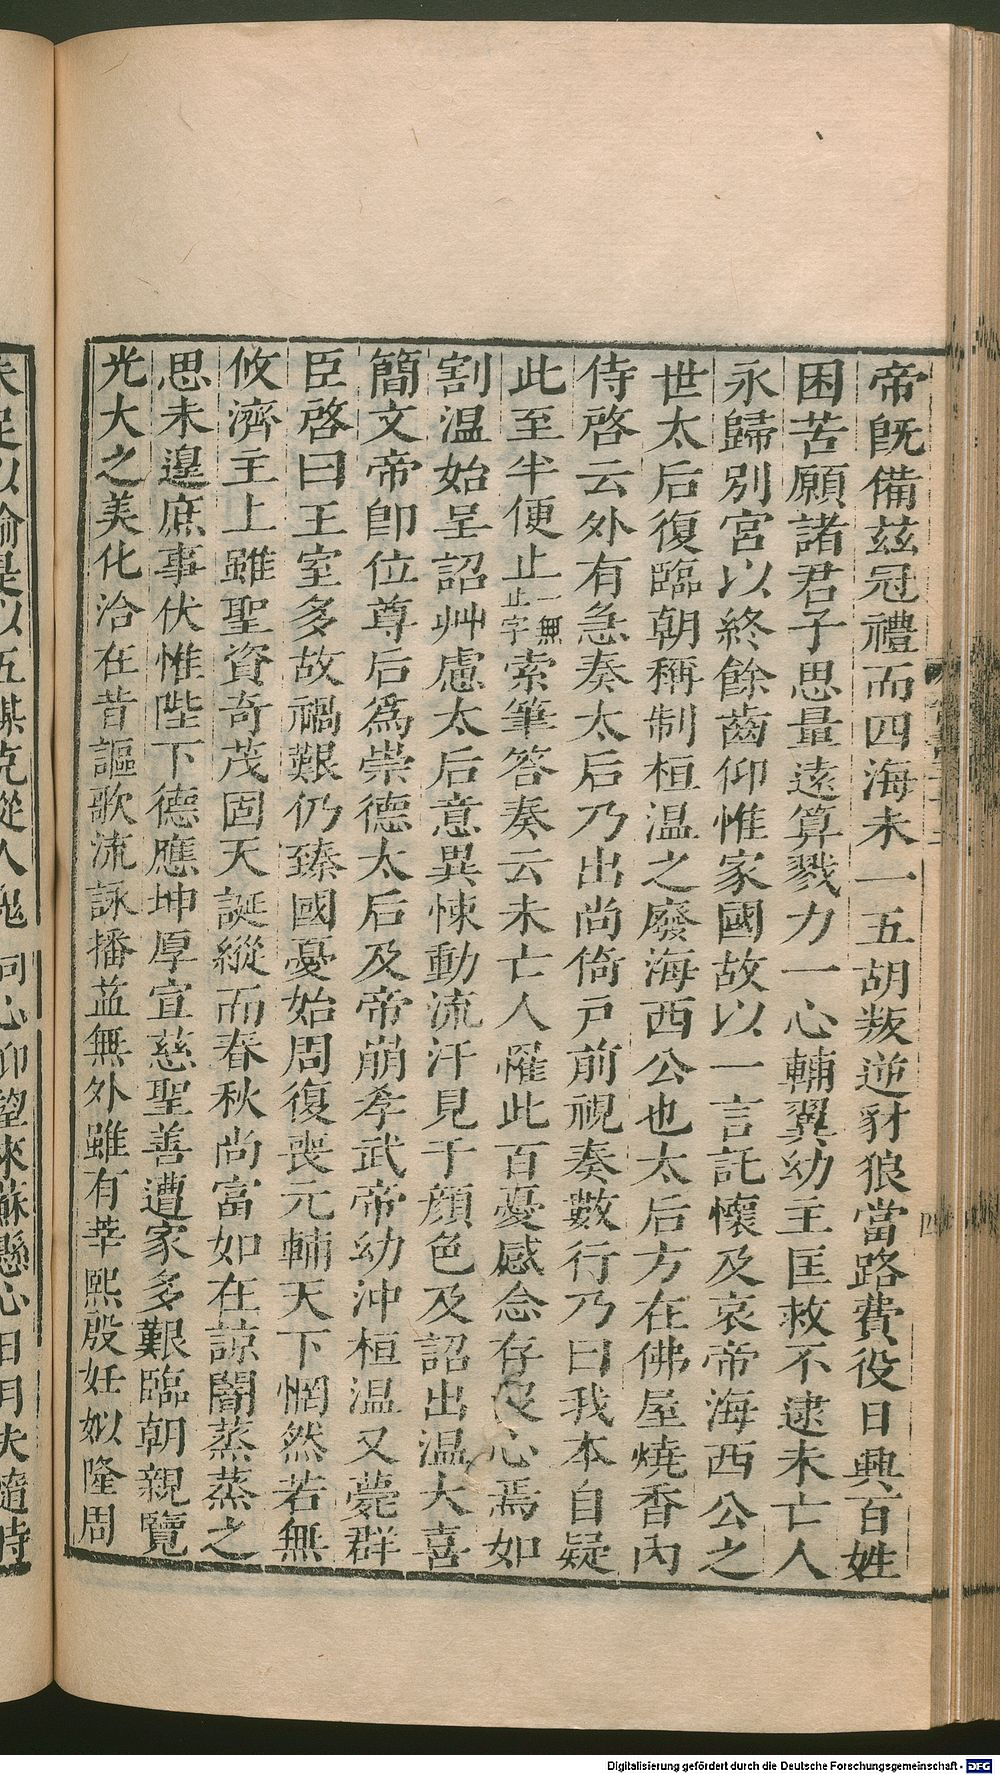 帝既備茲冠禮而四海未一五胡叛逆豺狼當路費役日興百姓
困苦願諸君子思量遠算戮力一心輔翼幼主匡救不逮未亡人
永歸別宮以終餘齒仰惟家國故以一言託懷及哀帝海西公之
世太后復臨朝稱制桓温之廢海西公也太后方在佛屋燒香內
侍啓云外有急奏太后乃出尚倚戸前視奏數行乃曰我本自疑
此至半便止一無止字索筆答奏云未亡人罹此百憂感念存沒心焉如
割温始呈詔艸慮太后意異悚動流汗見于顔色及詔出温大喜
簡文帝卽位尊后爲崇德太后及帝崩孝武帝幼沖桓温又薨群
臣啓曰王室多故禍艱仍臻國憂始周復喪元輔天下惘然若無
攸濟主上雖聖資奇茂固天誕縱而春秋尚富如在諒闇蒸蒸之
思未遑庶事伏惟陛下德應坤厚宣慈聖善遭家多艱臨朝親覽
光大之美化洽在昔謳歌流詠播蓝無外雖有莘熙殷妊姒隆周
未足以喻是以五謀克從人鬼同心仰望來蘇懸心日月夫隨時
Digitalisierung gefördert durch die Deutsche Forschungsgemeinschaft - DFG